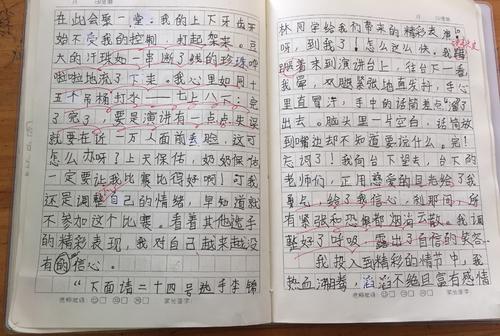 在此会聚一堂。我的上下牙齿开
始不受我的控制,打起架来。豆
大的汗珠如一串断了线的珍珠哗
啦啦地流了下来。我心里如同十
五个吊桶打水——七上八下:完
了完了,要是演讲有一点点失误
就要在近一万人面前丢脸,这可
怎么办呀?上天保佑,奶奶保佑
一定要让我比赛比得好啊!可我
还是调整自己的情绪,早知道就
不参加这个比赛。看着其他选手
的精彩表现,我对自己越来越没
有的信心。
"下面请二十四号选手李锦
林同学给我们带来的精彩
呀,到我了!怎么这么快。我
着来到演讲台上,往台下一看,
我晕,双腿紧张地直发抖,手心
里直冒汗,手中的话筒差点"溜"了
出去。脑头里一片空白,话筒放
到嘴边却不知道要说什么。完!
忘词了!我向台下望去,台下的
老师们,正用慈爱的目光给了我
要点,给了我信心,刹那间,所
有紧张和恐惧都烟消云散。我调
整好了呼吸,露出了自信的笑容。
我投入到精彩的情节中,我
热血沸腾,滔滔不绝且富有感情